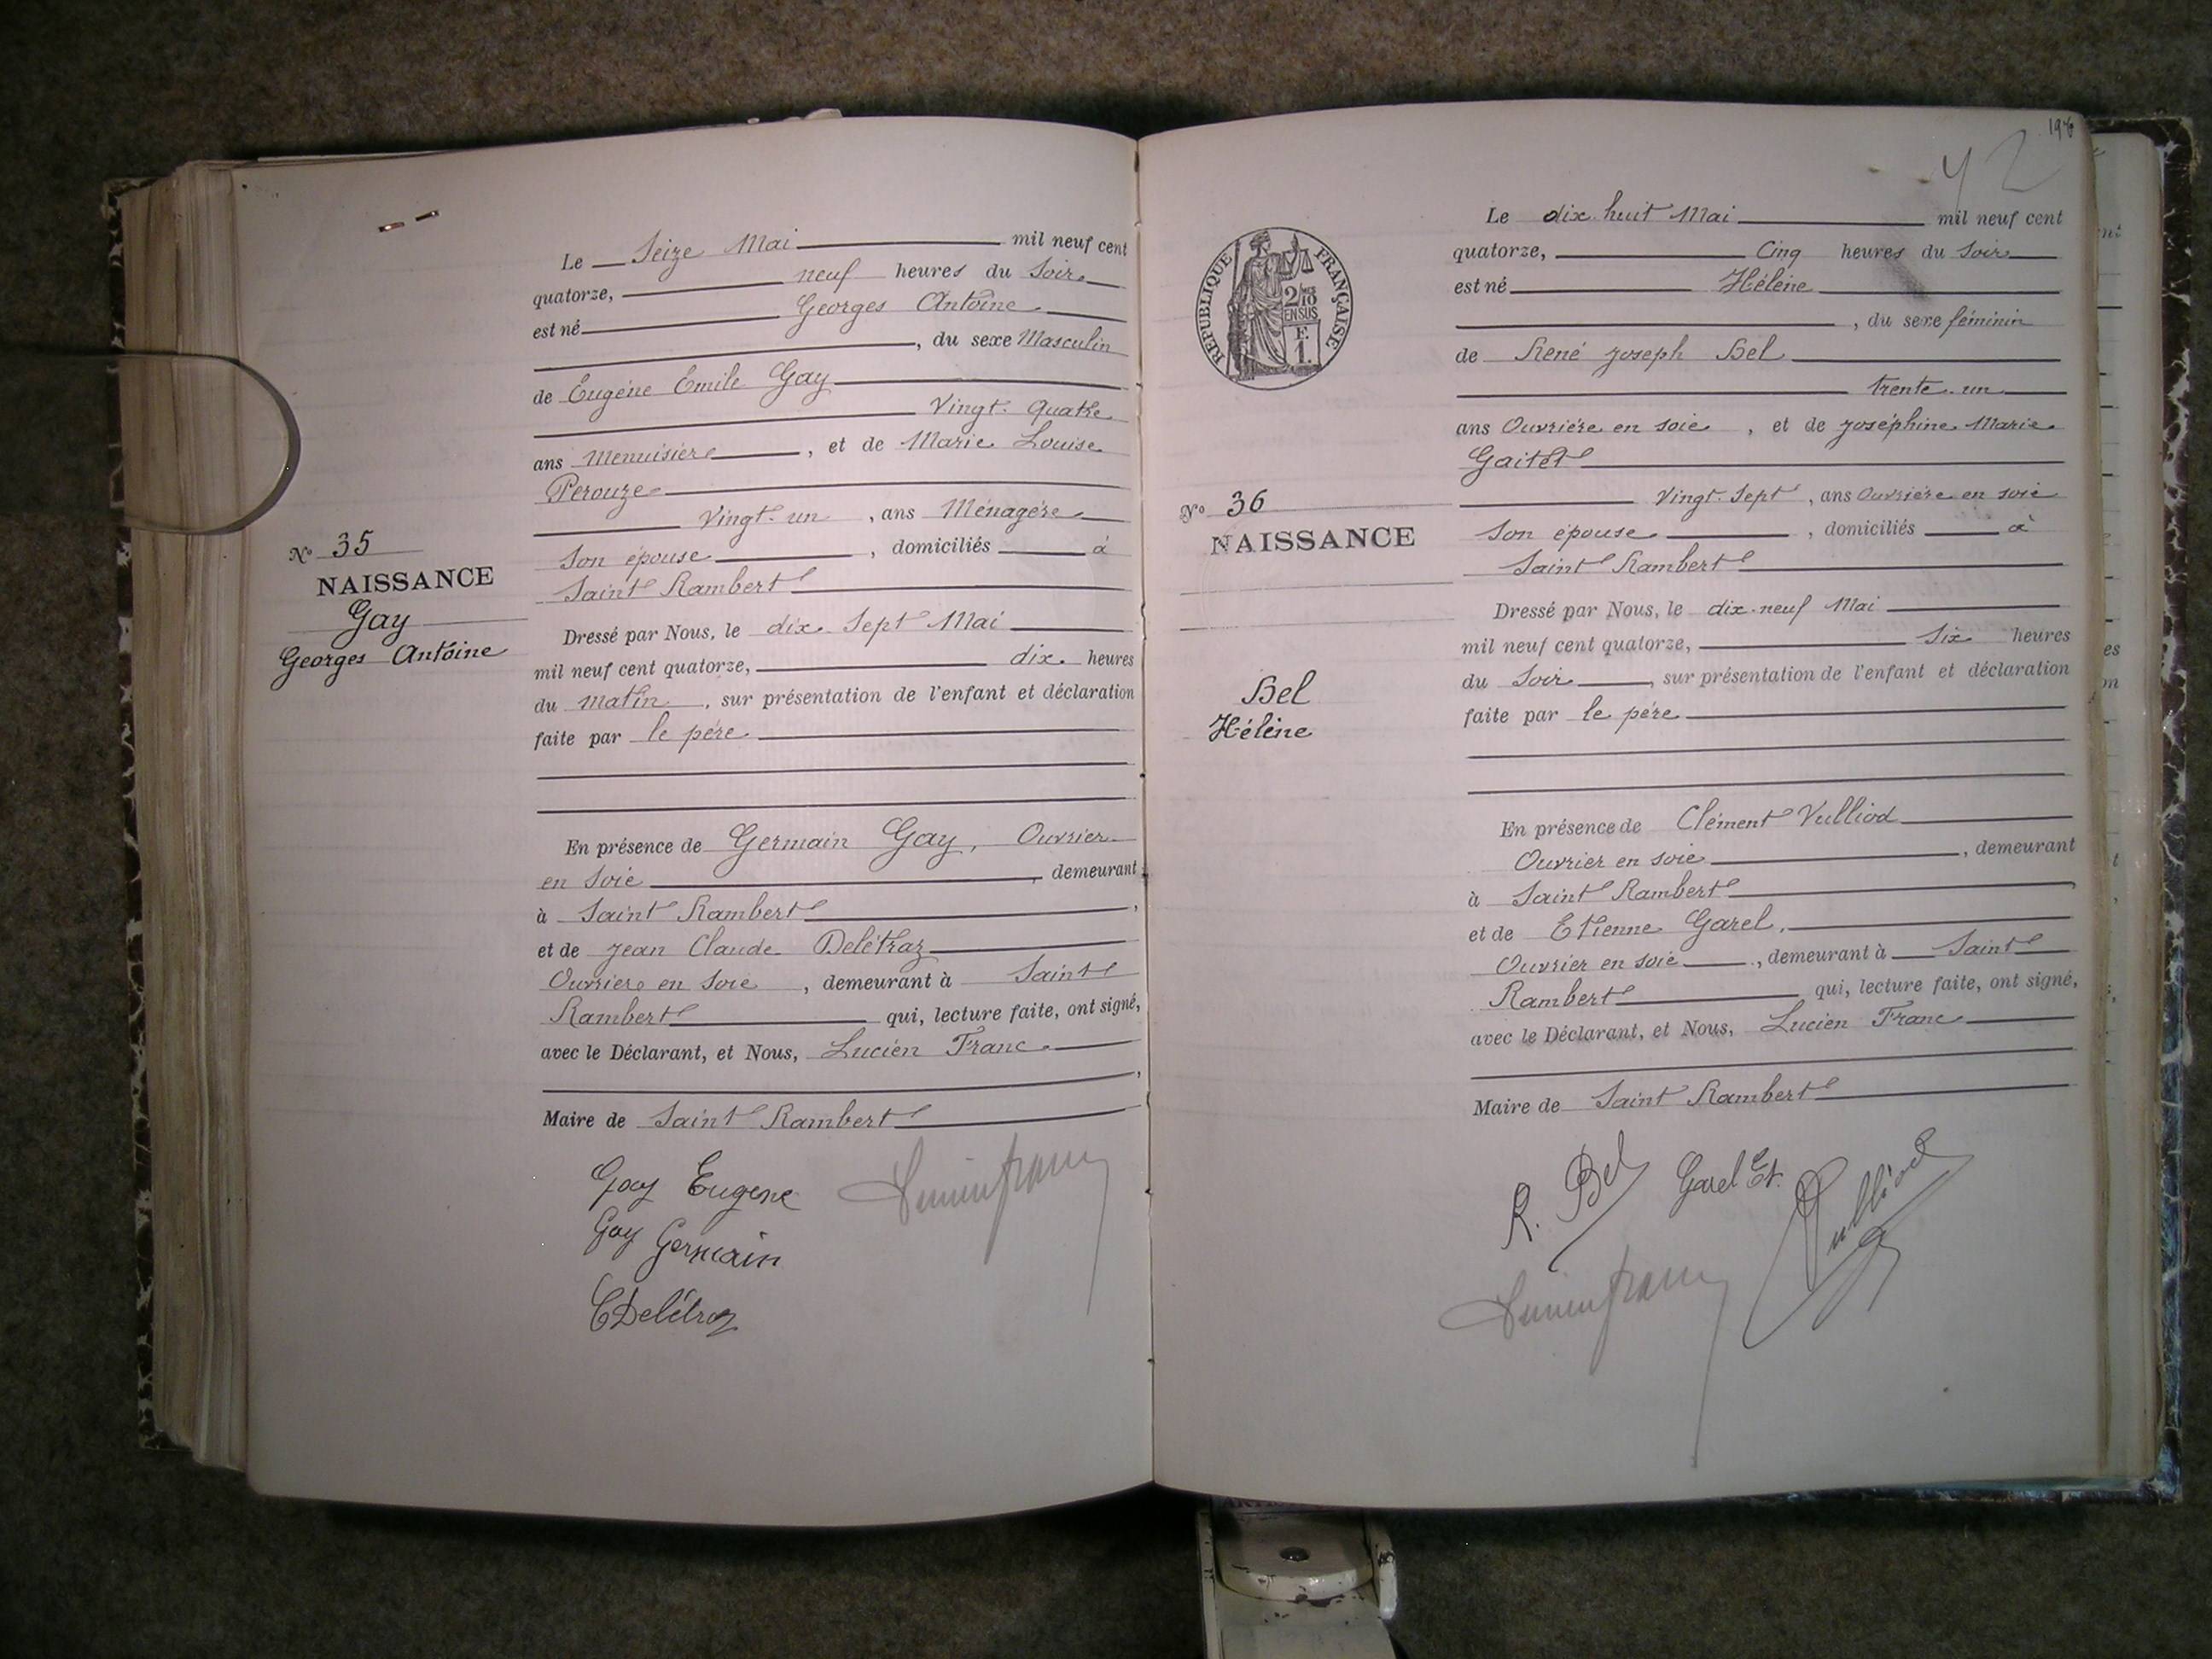 Le Seize Mai mil neuf cent
quatorze, neuf heures du Soir
est né Georges Antoine
, du sexe Masculin
de Eugène Emile Gay
Vingt-quatre
ans Menuisier , et de Marie Louise
Perouze
Vingt-un , ans Ménagère
Son épouse , domiciliés à
Saint Rambert
Nº 35
NAISSANCE
Gay
Georges Antoine
Dressé par Nous, le dix Sept Mai
mil neuf cent quatorze, dix heures
du matin , sur présentation de l'enfant et déclaration
faite par le père
En présence de Germain Gay, Ouvrier
en Soie , demeurant
à Saint Rambert ,
et de Jean Claude Delétraz
Ouvrier en Soie , demeurant à Saint
Rambert qui, lecture faite, ont signé,
avec le Déclarant, et Nous, Lucien Franc
,
Maire de Saint Rambert
Gay Eugene
Gay Germain
C Delétraz
Lucien Franc
42
RÉPUBLIQUE FRANÇAISE
2/10
EN SUS
F.
1.
Le dix-huit Mai mil neuf cent
quatorze, Cinq heures du Soir
est né Hélène
, du sexe féminin
de René Joseph Bel
trente-un
ans Ouvrière en soie , et de Joséphine Marie
Gaitet
Vingt-Sept , ans Ouvrière en soie
Son épouse , domiciliés à
Saint Rambert
Nº 36
NAISSANCE
Bel
Hélène
Dressé par Nous, le dix-neuf Mai
mil neuf cent quatorze, Six heures
du Soir , sur présentation de l'enfant et déclaration
faite par le père
En présence de Clément Vulliod
Ouvrier en soie , demeurant
à Saint Rambert ,
et de Etienne Garel,
Ouvrier en soie , demeurant à Saint
Rambert qui, lecture faite, ont signé,
avec le Déclarant, et Nous, Lucien Franc
Maire de Saint Rambert
R. Bel Garel Et. Vulliod
Lucien Franc